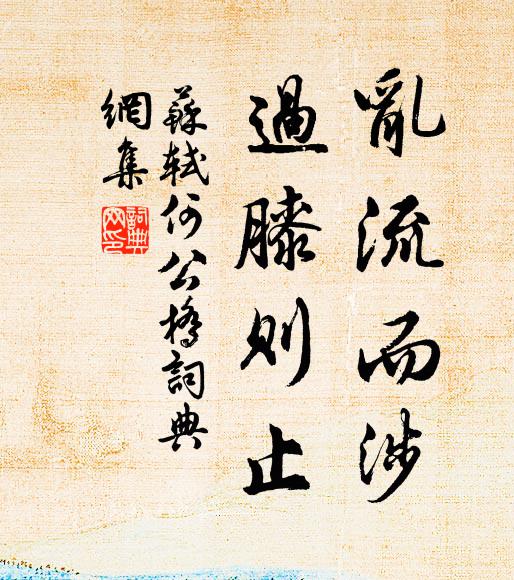 亂流而涉
過膝則止
蘇軾何公橋詞典
網集
詞典
网印